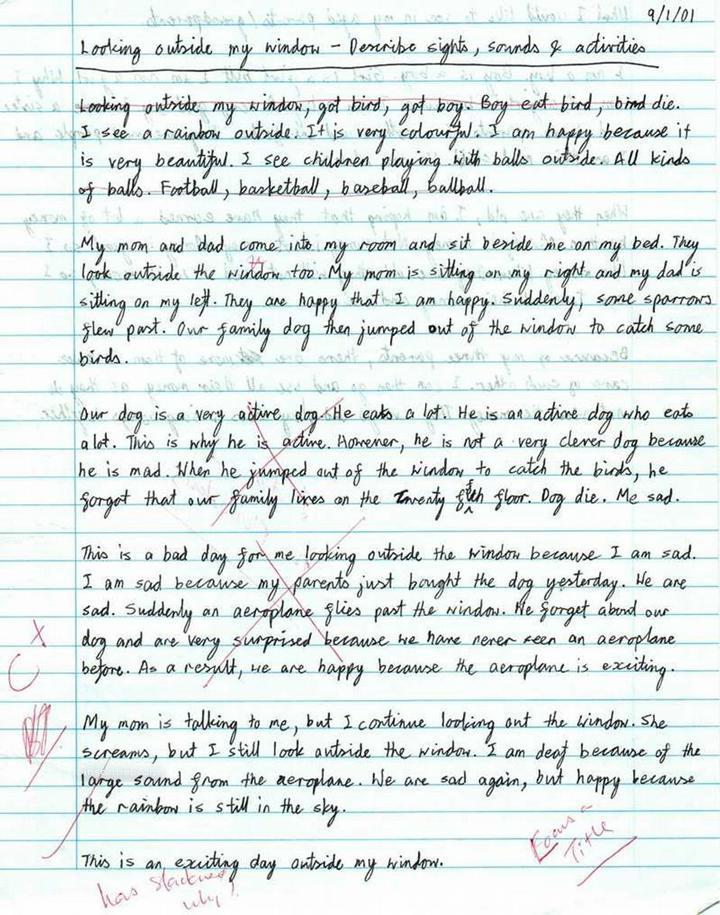 9/1/01
Looking outside my window – Describe sights, sounds & activities
Looking outside my window, got bird, got boy. Boy eat bird, bird die.
I see a rainbow outside. It is very colourful. I am happy because it
is very beautiful. I see children playing with balls outside. All kinds
of balls. Football, basketball, baseball, ballball.
My mom and dad come into my room and sit beside me on my bed. They
look outside the window too. My mom is sitting on my right and my dad is
sitting on my left. They are happy that I am happy. Suddenly, some sparrows
flew past. Our family dog then jumped out of the window to catch some
birds.
Our dog is a very active dog. He eats a lot. He is an active dog who eats
a lot. This is why he is active. However, he is not a very clever dog because
he is mad. When he jumped out of the window to catch the birds, he
forgot that our family lives on the Twenty fifth floor. Dog die. Me sad.
This is a bad day for me looking outside the window because I am sad.
I am sad because my parents just bought the dog yesterday. We are
sad. Suddenly an aeroplane flies past the window. We forget about our
dog and are very surprised because we have never seen an aeroplane
before. As a result, we are happy because the aeroplane is exciting.
My mom is talking to me, but I continue looking out the window. She
screams, but I still look outside the window. I am deaf because of the
large sound from the aeroplane. We are sad again, but happy because
the rainbow is still in the sky.
This is an exciting day outside my window.
Title
has
why!